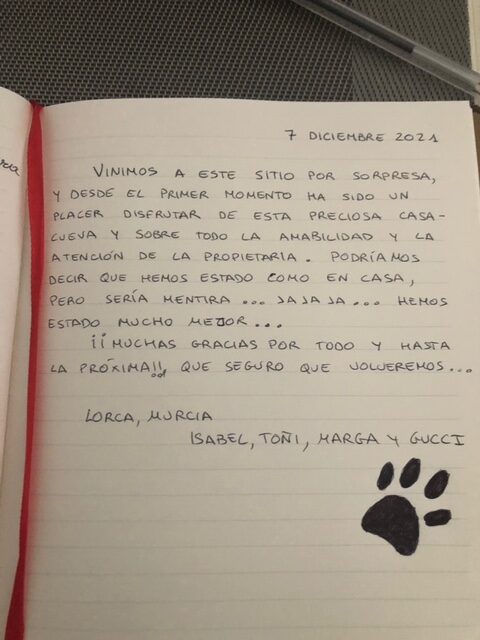 7 DICIEMBRE 2021
VINIMOS A ESTE SITIO POR SORPRESA,
Y DESDE EL PRIMER MOMENTO HA SIDO UN
PLACER DISFRUTAR DE ESTA PRECIOSA CASA-
CUEVA Y SOBRE TODO LA AMABILIDAD Y LA
ATENCIÓN DE LA PROPIETARIA. PODRÍAMOS
DECIR QUE HEMOS ESTADO COMO EN CASA,
PERO SERÍA MENTIRA... JAJAJA... HEMOS
ESTADO MUCHO MEJOR...
¡¡MUCHAS GRACIAS POR TODO Y HASTA
LA PRÓXIMA!!, QUE SEGURO QUE VOLVEREMOS...
LORCA, MURCIA
ISABEL, TOÑI, MARGA Y GUCCI